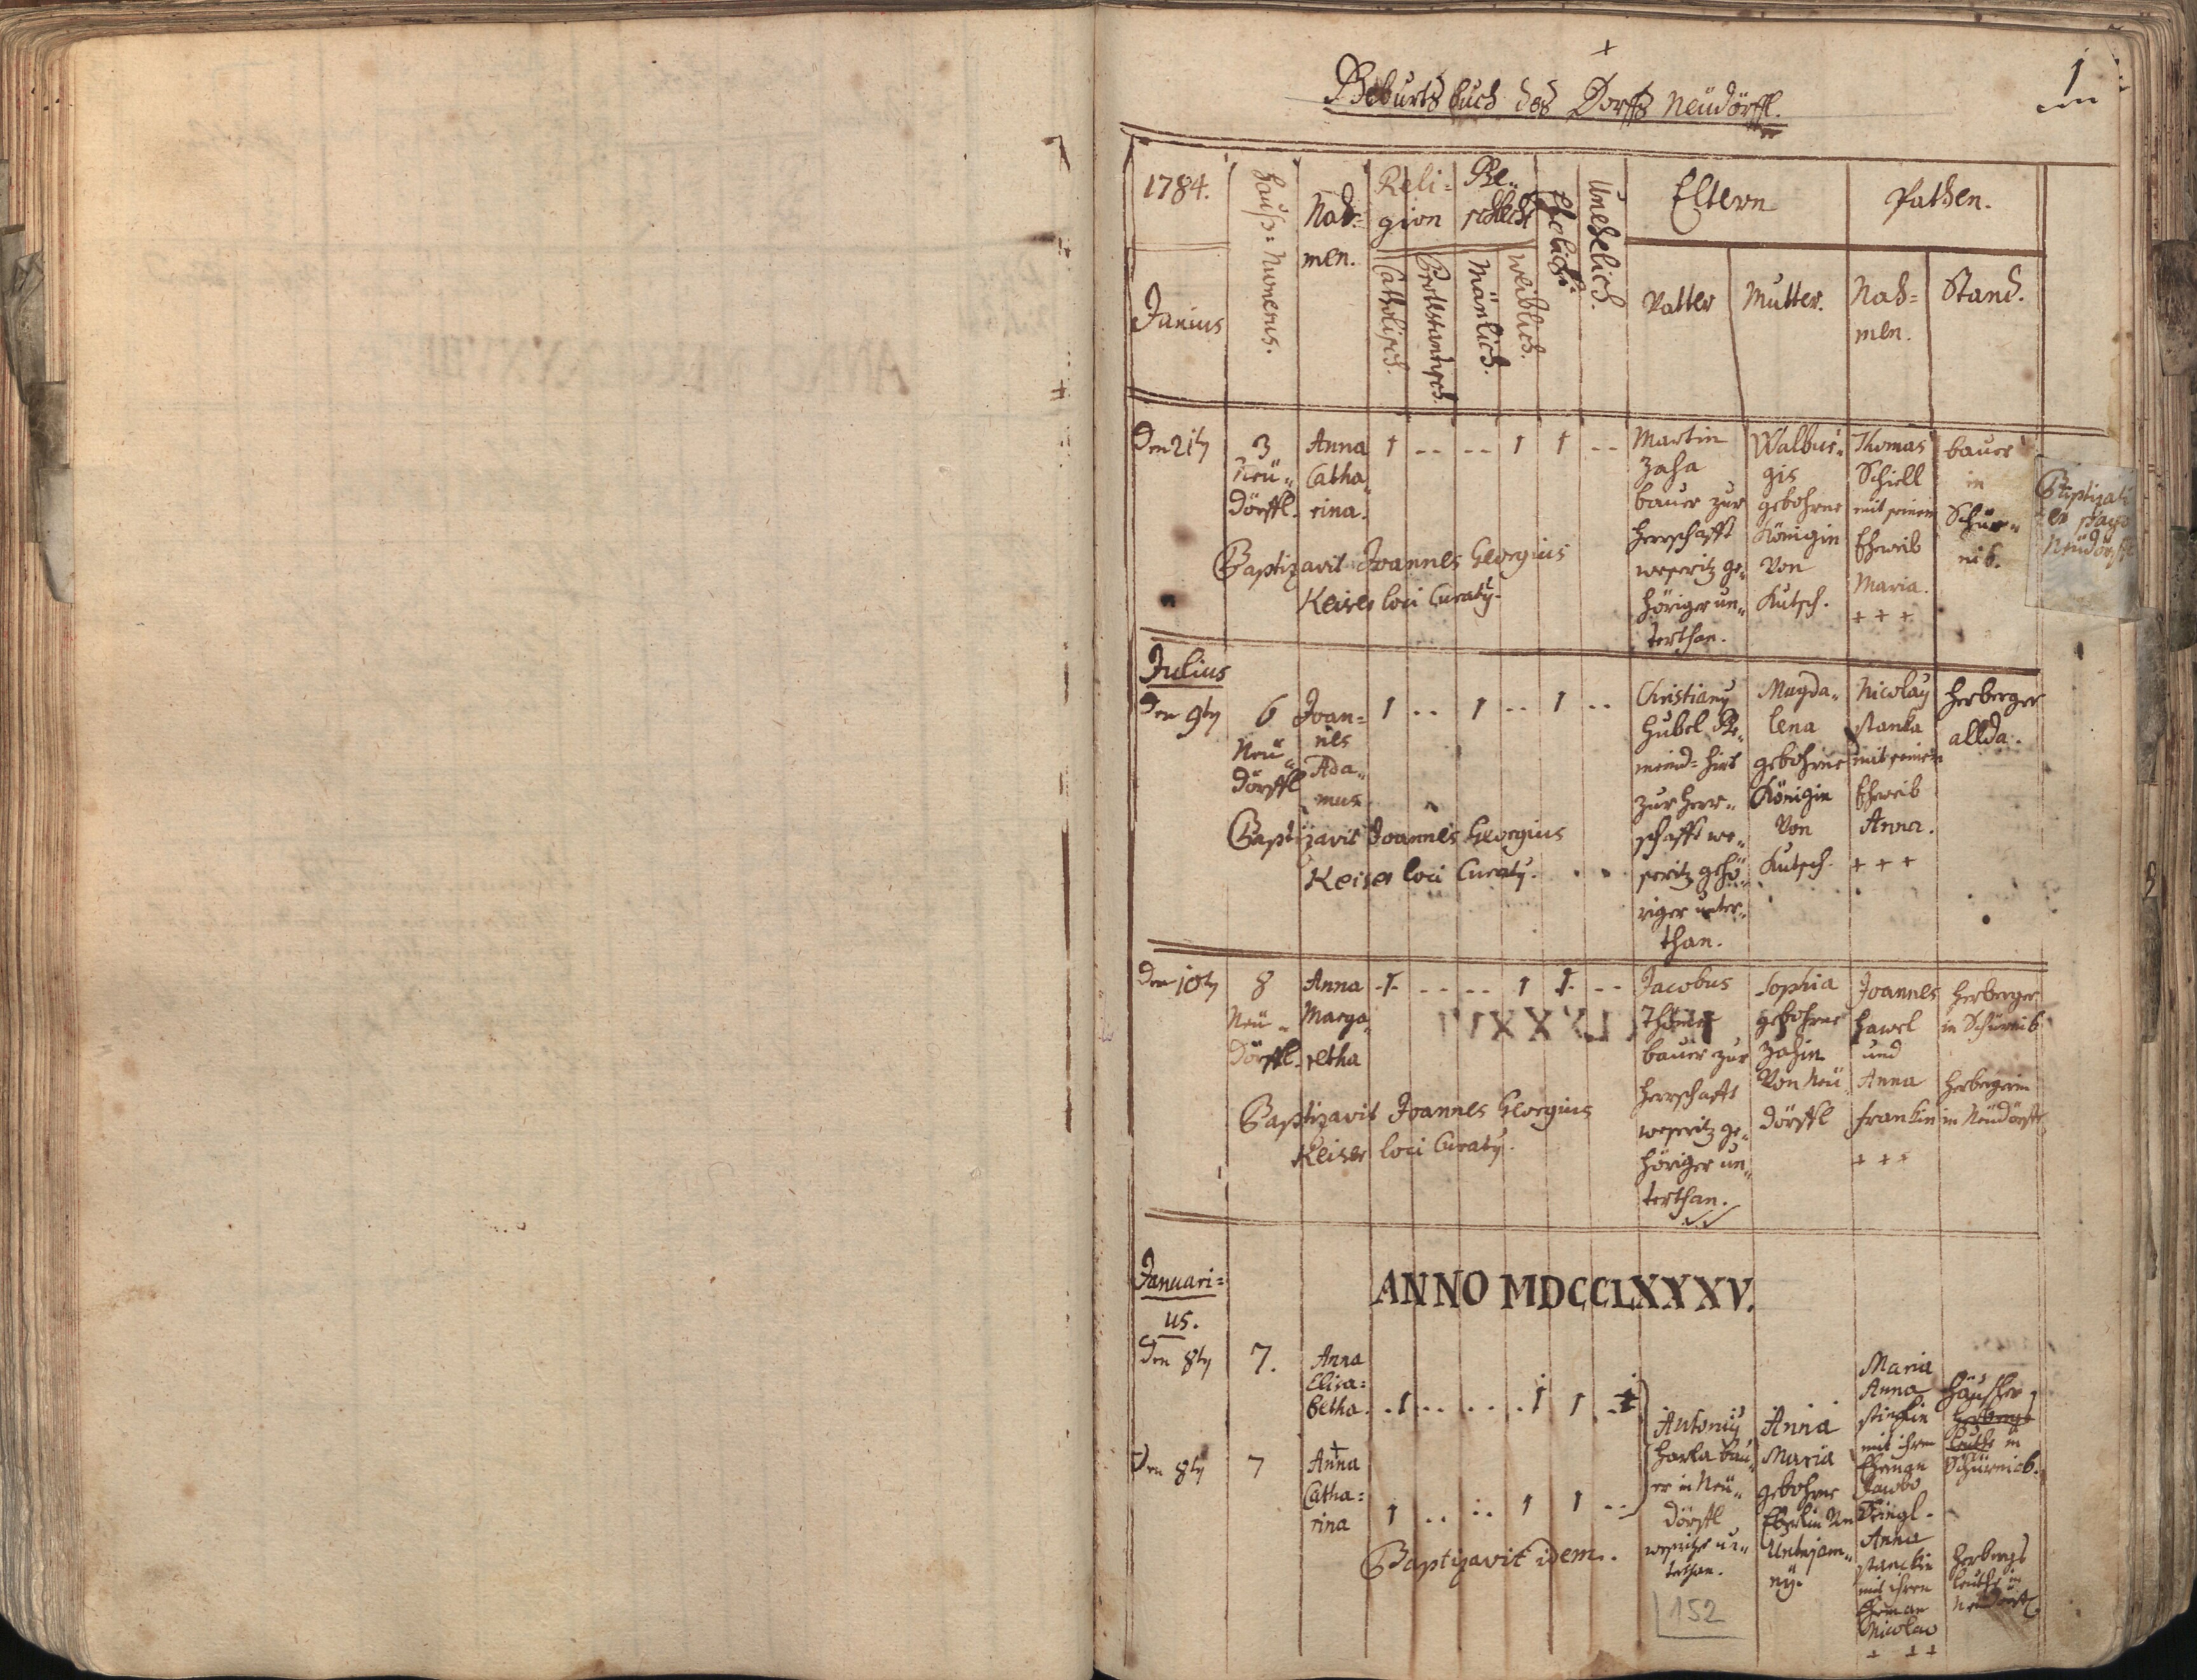 +
Geburts buch des Dorffs Neüdörffl.
1
1784.
Junius
Hauß-Numerus.
Nah-
men.
Reli-
gion
Catholisch.
Ge-
schlecht
Mänlich.
weiblich.
Ehelich.
Unehelich.
Eltern
Vatter
Mutter.
Pathen.
Nah-
men.
Stand.
Den 21ty
3
Neü-
dörffl.
Anna
Catha-
rina.
1 -- -- 1 1 --
Martin
Zaha
bauer zur
Herrschafft
weseritz ge-
höriger un-
terthan.
Walbur-
gis
gebohrne
Königin
Von
Kutsch.
Thomas
Schiell
mit seinem
Eheweib
Maria.
+ + +
bauer
in
Schür-
nib.
Baptizati
ex pago
Neüdörffl
Baptizavit Joannes Georgius
Keiser loci Curaty.
Julius
Den 9ty
6
Neü-
dörffl
Joan-
nes
Ada-
mus
1 -- 1 -- 1 --
Christiany
Hubel Ge-
meind-hirt
zur Herr-
schafft we-
seritz gehö-
riger unter-
than.
Magda-
lena
gebohrne
Königin
Von
Kutsch.
Nicolay
stanka
mit seinem
Eheweib
Anna.
+ + +
Herberger
allda.
Baptizavit Joannes Georgius
Keiser loci Curaty.
Den 10ty
8
Neü-
dörffl.
Anna
Marga-
retha
1 -- -- 1 1 --
Jacobus
bauer zur
Herrschafft
weseritz ge-
höriger un-
terthan.
Sophia
gebohrne
Zahin
Von Neü
dörffl
Joannes
Hawel
und
Anna
frankin
+ + +
Herberger
in Schürnib
Herbergerin
in Neüdörffl
Baptizavit Joannes Georgius
Keiser loci Curaty.
ANNO MDCCLXXXV.
Januari-
us.
Den 8ty
7.
Anna
Elisa-
betha.
1 -- -- 1 1
Den 8ty
7
+
Anna
Catha-
rina
1 -- -- 1 1 --
Antoniy
Harla bau-
er in Neü-
dörffl
un-
terthan.
Anna
Maria
gebohrne
Von
ny.
Maria
Anna
mit ihrem
Eheman
Jacob
Anna
stankin
mit ihren
Eheman
Nicolao
+ + +
Häusler
Herbergs
leuthe in
Schürnib.
Herbergs
leuthe in
Neüdörffl.
Baptizavit idem.
152